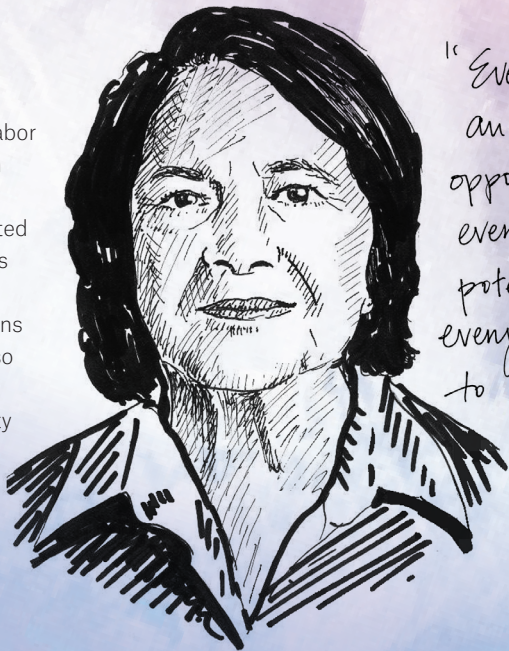 abor
ted
s
ns
so
ty
"Eve
an
oppo
even
pote
every
to